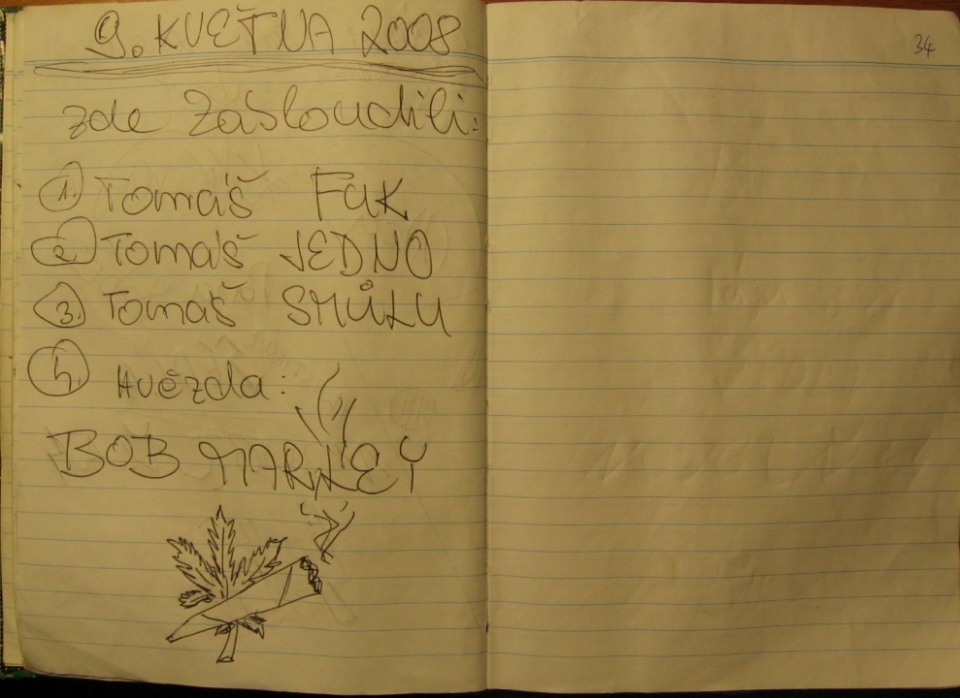 9. KVĚTNA 2008
zde zašloudili:
1. Tomáš FUK
2. Tomáš JEDNO
3. Tomáš SMŮLU
4. Hvězda:
BOB MARLEY
34